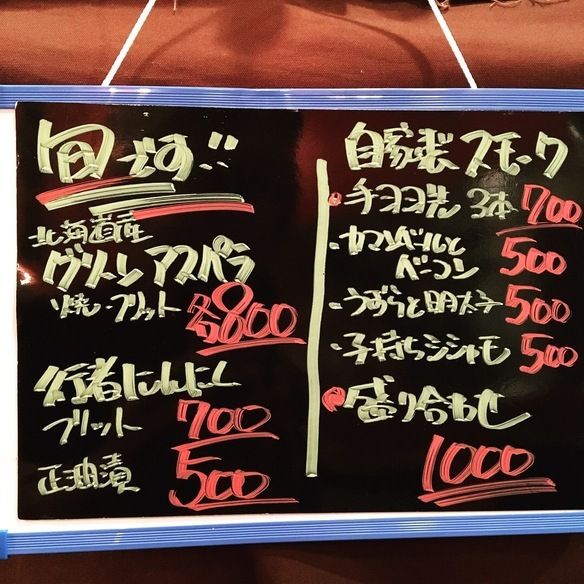 旬です!!
北海道産
グリーンアスパラ
焼・フリット 各800
行者にんにく
フリット 700
正油漬 500
自家製スモーク
・手羽先 3本 700
・カマンベールと
ベーコン 500
・うずらと明太子 500
・子持ちシシャモ 500
盛り合わせ
1000